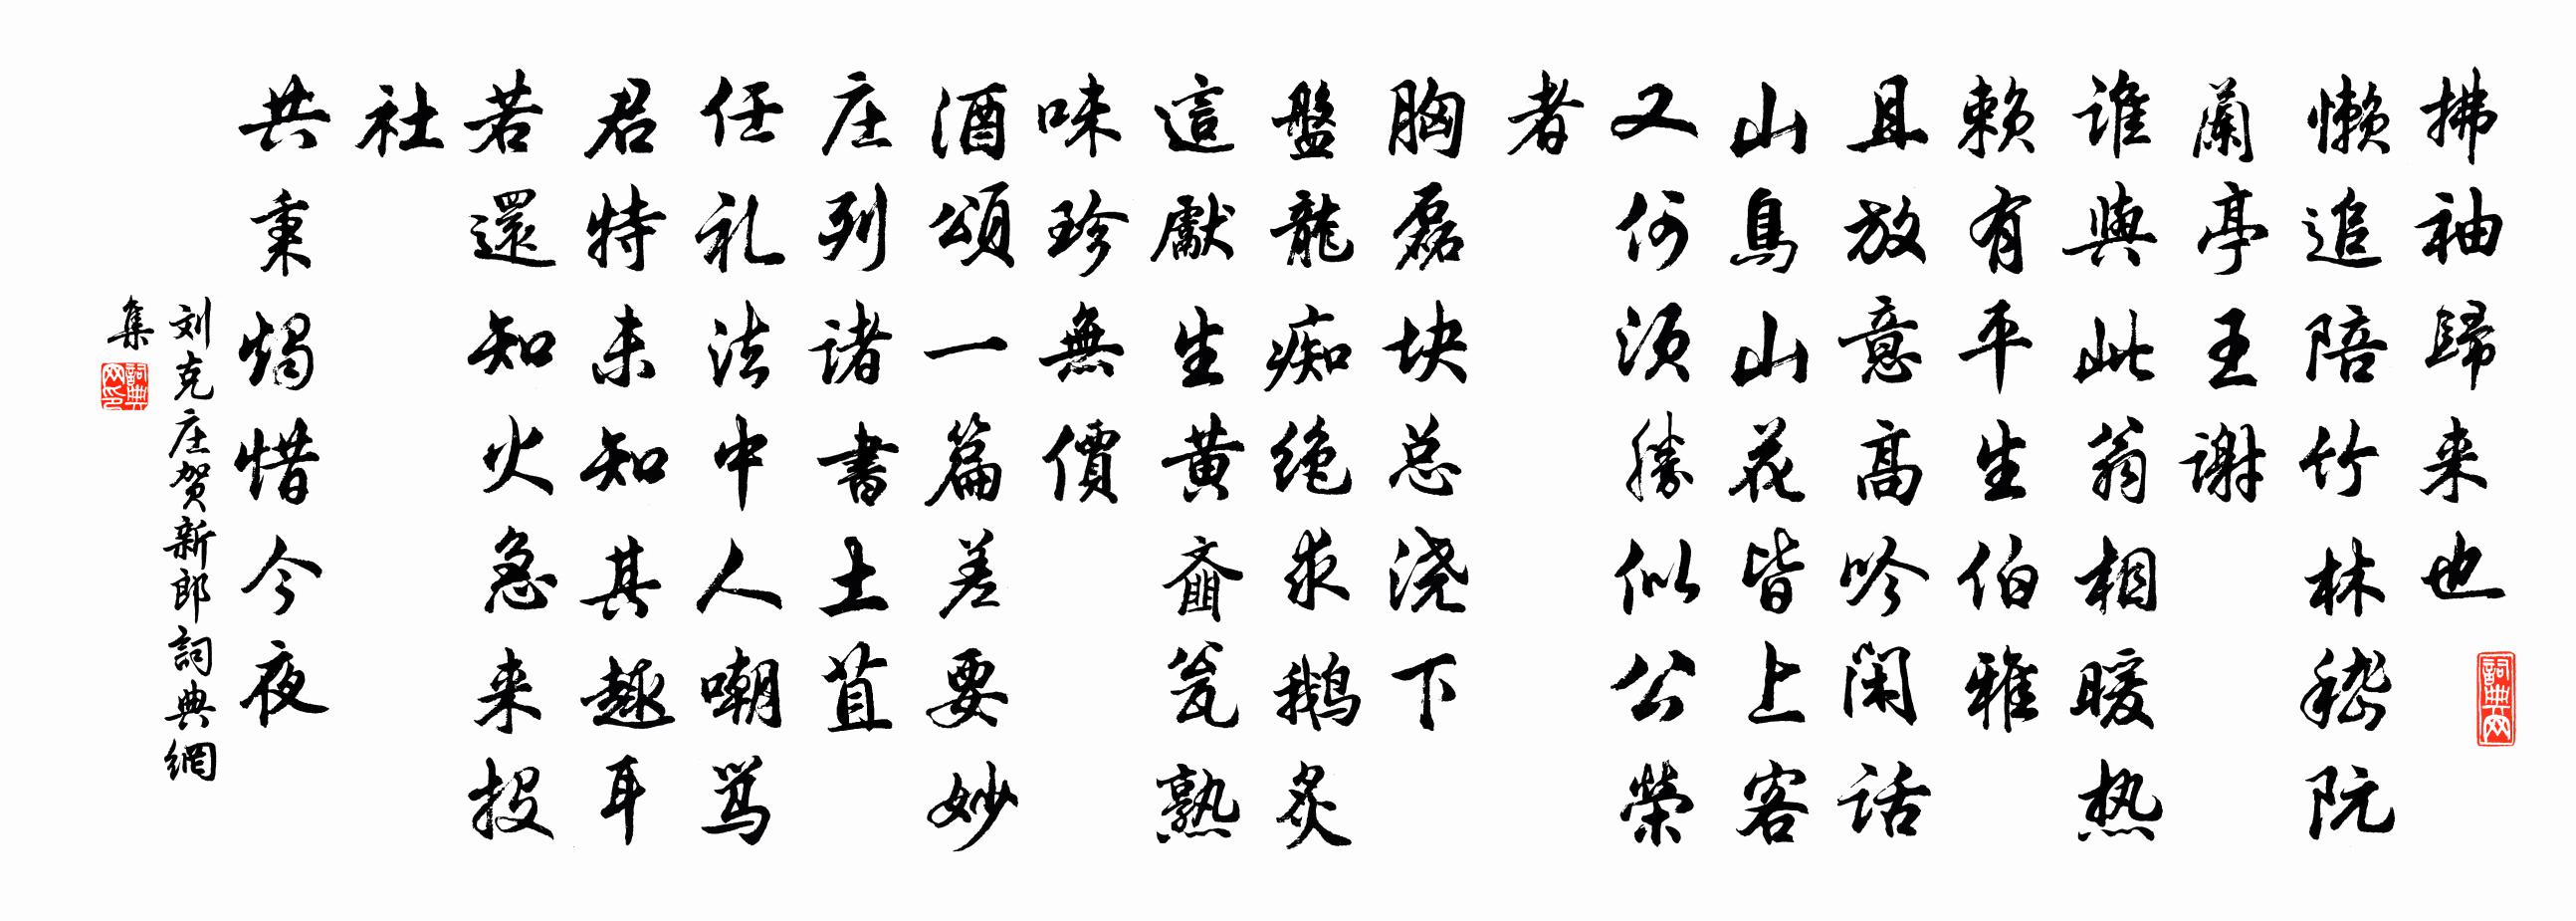 拂袖歸来也
詞典网
懒追陪竹林嵇阮
蘭亭王谢
谁與此翁相暖热
赖有平生伯雅
且放意高吟闲话
山鳥山花皆上客
又何须勝似公榮
者
胸磊块总浇下
盤龍痴绝求鹅炙
這獻生黄齑瓮熟
味珍無價
酒頌一篇差要妙
庄列诸書土苴
任礼法中人嘲骂
君特未知其趣耳
若還知火急来投
社
共秉燭惜今夜
刘克庄贺新郎詞典網
集
詞典网印